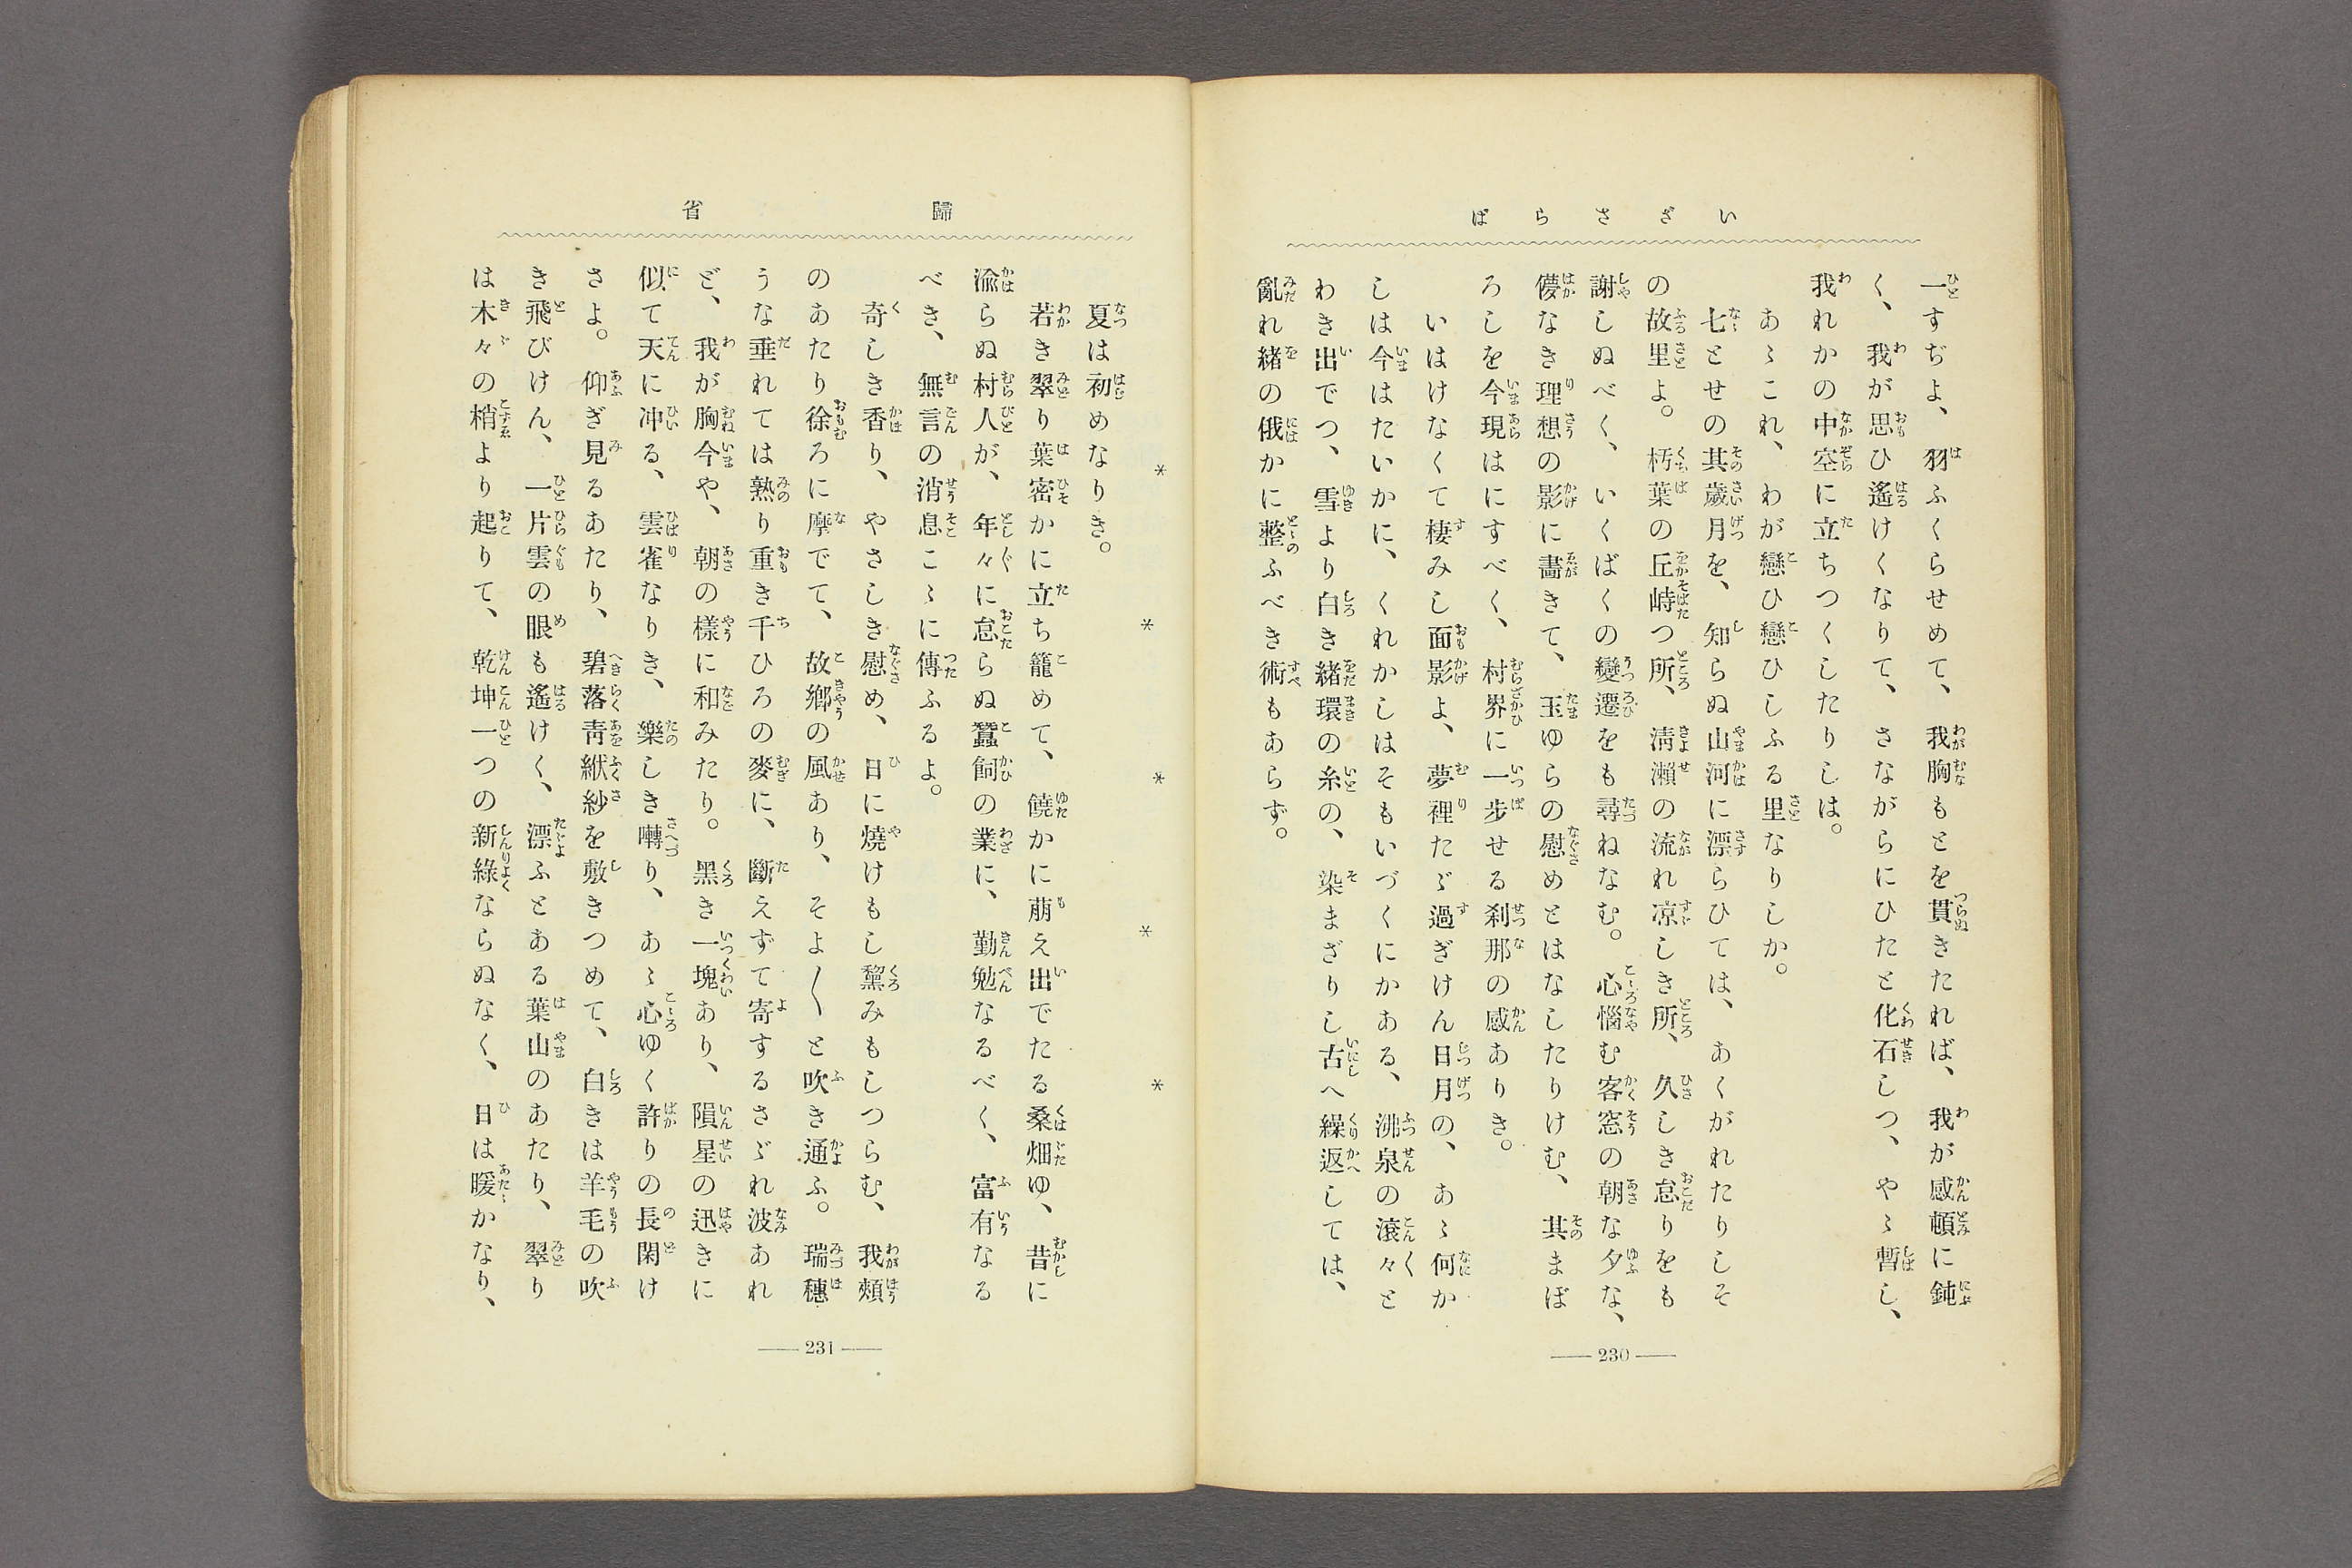 いざさらば
一すぢよ、羽ふくらせめて、我胸もとを貫きたれば、我が感頓に鈍
く、我が思ひ遙けくなりて、さながらにひたと化石しつ、やゝ暫し、
我れかの中空に立ちつくしたりしは。
あゝこれ、わが戀ひ戀ひしふる里なりしか。
七とせの其歲月を、知らぬ山河に漂らひては、あくがれたりしそ
の故里よ。朽葉の丘峙つ所、淸瀨の流れ凉しき所、久しき怠りをも
謝しぬべく、いくばくの變遷をも尋ねなむ。心惱む客窓の朝な夕な、
儚なき理想の影に畵きて、玉ゆらの慰めとはなしたりけむ、其まぼ
ろしを今現はにすべく、村界に一步せる刹那の感ありき。
いはけなくて棲みし面影よ、夢裡たゞ過ぎけん日月の、あゝ何か
しは今はたいかに、くれかしはそもいづくにかある、沸泉の滾々と
わき出でつ、雪より白き緖環の糸の、染まざりし古へ繰返しては、
亂れ緖の俄かに整ふべき術もあらず。
230
歸省
* * * * *
夏は初めなりき。
若き翠り葉密かに立ち籠めて、饒かに萠え出でたる桑畑ゆ、昔に
渝らぬ村人が、年々に怠らぬ蠶飼の業に、勤勉なるべく、富有なる
べき、無言の消息こゝに傳ふるよ。
奇しき香り、やさしき慰め、日に燒けもし黧みもしつらむ、我頰
のあたり徐ろに摩でて、故鄕の風あり、そよ〱と吹き通ふ。瑞穗
うな垂れては熟り重き千ひろの麥に、斷えずて寄するさゞれ波あれ
ど、我が胸今や、朝の樣に和みたり。黑き一塊あり、隕星の迅きに
似て天に冲る、雲雀なりき、樂しき囀り、あゝ心ゆく許りの長閑け
さよ。仰ぎ見るあたり、碧落靑紱紗を敷きつめて、白きは羊毛の吹
き飛びけん、一片雲の眼も遙けく、漂ふとある葉山のあたり、翠り
は木々の梢より起りて、乾坤一つの新綠ならぬなく、日は暖かなり、
231